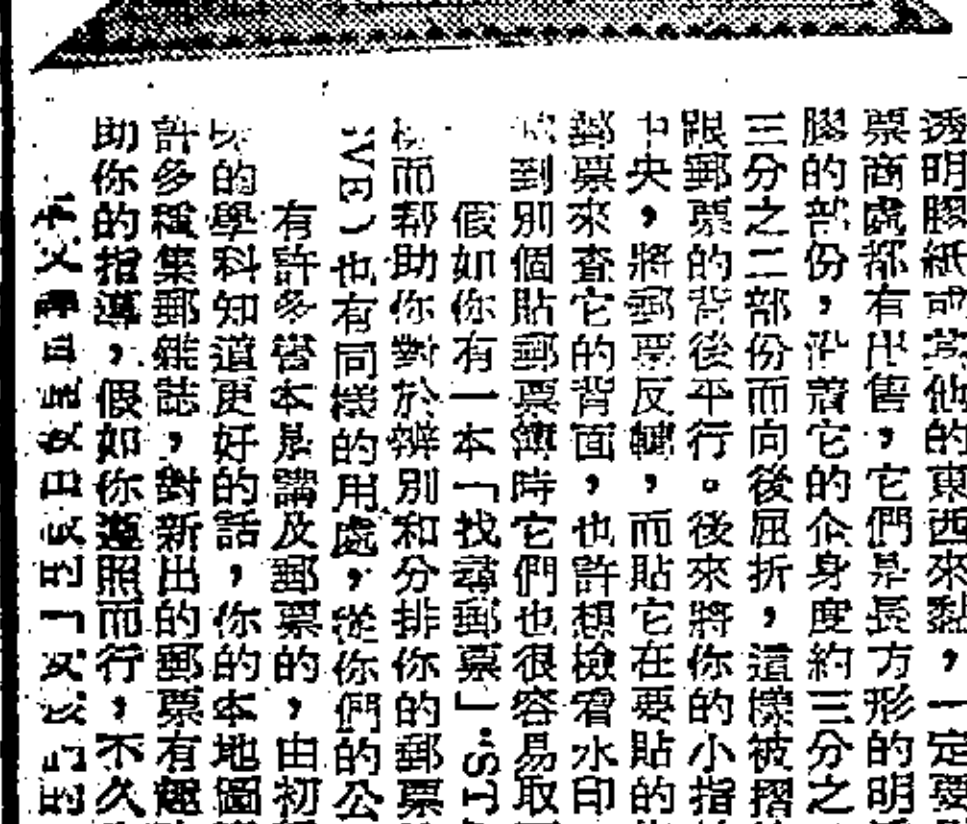 透明膠紙或其他的東西來黏，一定要
票商處都有出售，它們是長方形的明
膠的部份，沿着它的企身度約三分之
三分之二部份而向後屈折，這樣被摺
跟郵票的背後平行。後來將你的小指
中央，將郵票反轉，而貼它在要貼的
郵票來查它的背面，也許想檢看水印
到別個貼郵票簿時它們也很容易取
假如你有一本「找尋郵票」
而帮助你對於辨別和分排你的郵票
也有同樣的用處，從你們的公
有許多書本是講及郵票的，由初
的學科知道更好的話，你的本地圖
許多種集郵雜誌，對新出的郵票有趣
助你的指導，假如你遵照而行，不久